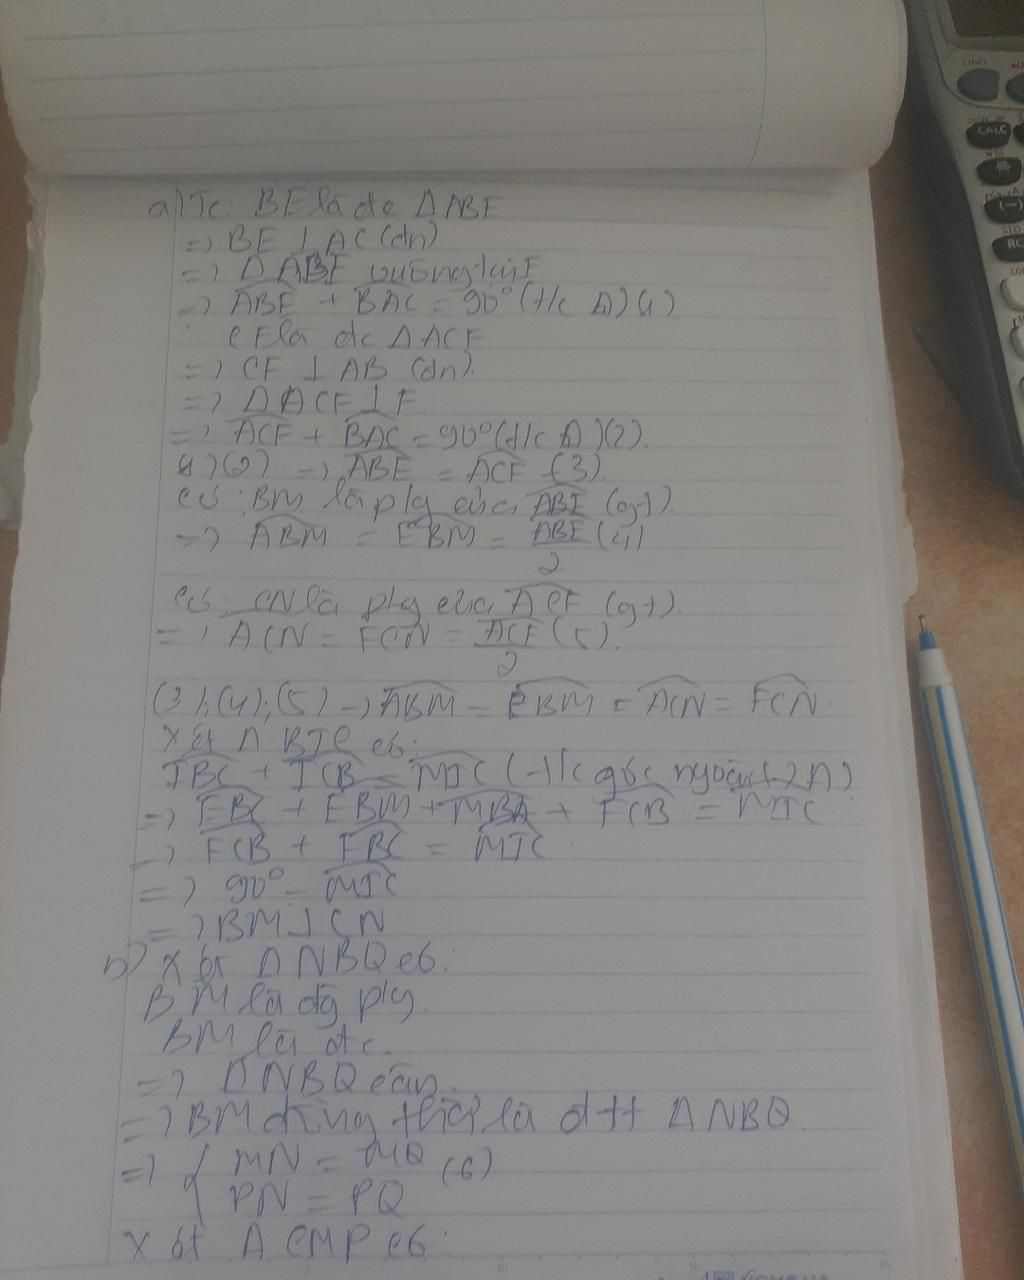 a) Tc: BE là đc Δ ABE
=> BE ⊥ AC (đn)
=> Δ ABE vuông tại E
=> ABE + BAC = 90° (t/c Δ) (1)
CF là đc Δ ACF
=> CF ⊥ AB (đn).
=> Δ ACF ⊥ F
=> ACF + BAC = 90° (t/c Δ) (2).
(1) (2) => ABE = ACF (3).
Có: BM là p/g của ABE (gt).
=> ABM = EBM = ABE/2 (4)
Có: CN là p/g của ACF (gt).
=> ACN = FCN = ACF/2 (5).
(3);(4);(5) => ABM = EBM = ACN = FCN.
Xét Δ BIC có:
IBC + ICB = MIC (t/c góc ngoài Δ)
=> EBC + EBM + MBA + FCB = MIC
=> FCB + FBC = MIC
=> 90° = MIC
=> BM ⊥ CN
b) Xét Δ NBQ có:
BM là đg p/g.
BM là đc.
=> Δ NBQ cân.
=> BM đồng thời là đtt Δ NBQ
=> { MN = MQ (6)
PN = PQ
Xét Δ CMP có:
CALC
(-)